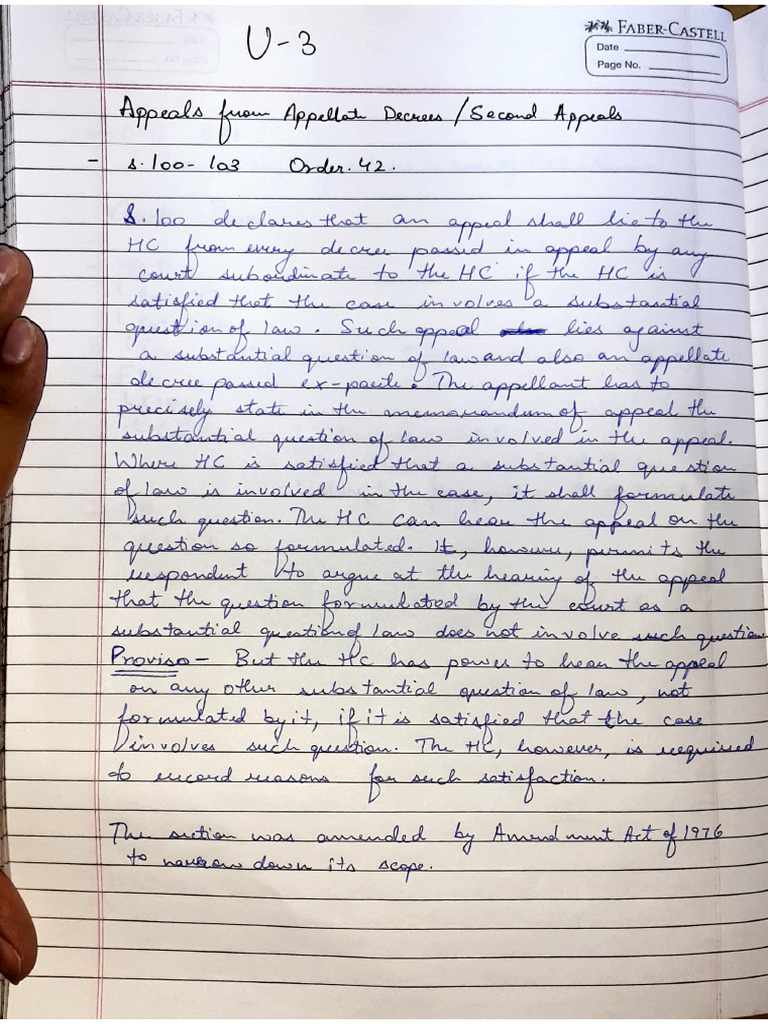 U-3
FABER-CASTELL
Date
Page No.
Appeals from Appellate Decrees / Second Appeals
- s.100-103 Order.42.
S.100 declares that an appeal shall lie to the
HC from every decree passed in appeal by any
court subordinate to the HC if the HC is
satisfied that the case involves a substantial
question of law. Such appeal lies against
a substantial question of law and also an appellate
decree passed ex-parte. The appellant has to
precisely state in the memorandum of appeal the
substantial question of law involved in the appeal.
Where HC is satisfied that a substantial question
of law is involved in the case, it shall formulate
such question. The HC can hear the appeal on the
question so formulated. It, however, permits the
respondent to argue at the hearing of the appeal
that the question formulated by the court as a
substantial question of law does not involve such question
Proviso - But the HC has power to hear the appeal
on any other substantial question of law, not
formulated by it, if it is satisfied that the case
involves such question. The HC, however, is required
to record reasons for such satisfaction.
The section was amended by Amendment Act of 1976
to narrow down its scope.